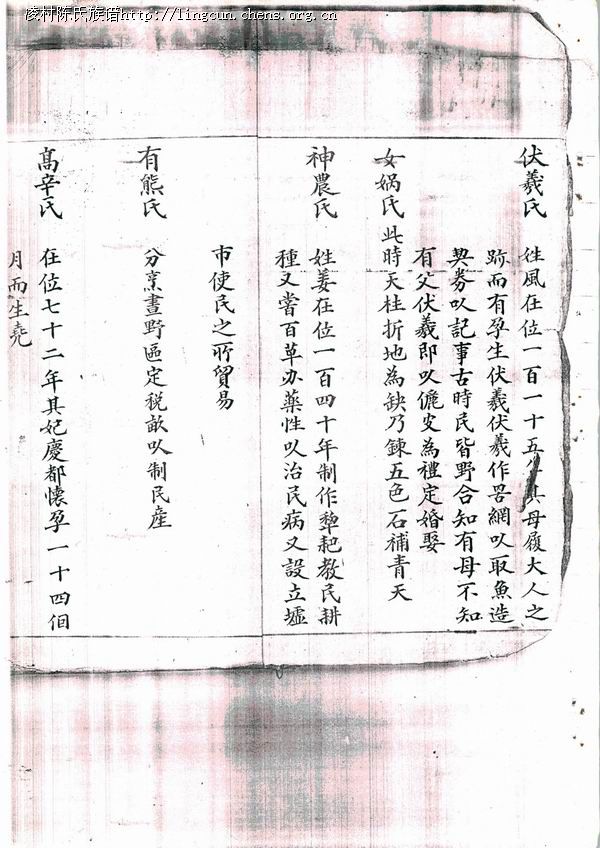 凌村陈氏族谱http://lingcun.chens.org.cn
伏羲氏 姓風在位一百一十五年其母履大人之
跡而有孕生伏羲伏羲作罟網以取魚造
契券以記事古時民皆野合知有母不知
有父伏羲即以儷皮為禮定婚娶
女媧氏 此時天柱折地為缺乃鍊五色石補青天
神農氏 姓姜在位一百四十年制作犂耙教民耕
種又嘗百草办藥性以治民病又設立墟
市使民之所貿易
有熊氏 分烹畫野區定税畝以制民産
髙辛氏 在位七十二年其妃慶都懷孕一十四個
月而生堯